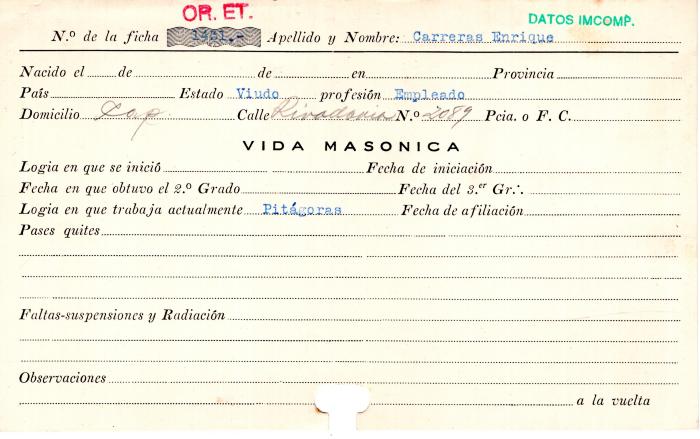 OR. ET.
DATOS IMCOMP.
N.º de la ficha 1451.- Apellido y Nombre: Carreras Enrique
Nacido el de de en Provincia
País Estado Viudo profesión Empleado
Domicilio Cap. Calle Rivadavia N.º 2089 Pcia. o F. C.
VIDA MASONICA
Logia en que se inició Fecha de iniciación
Fecha en que obtuvo el 2.º Grado Fecha del 3.er Gr∴
Logia en que trabaja actualmente Pitágoras Fecha de afiliación
Pases quites
Faltas-suspensiones y Radiación
Observaciones
a la vuelta